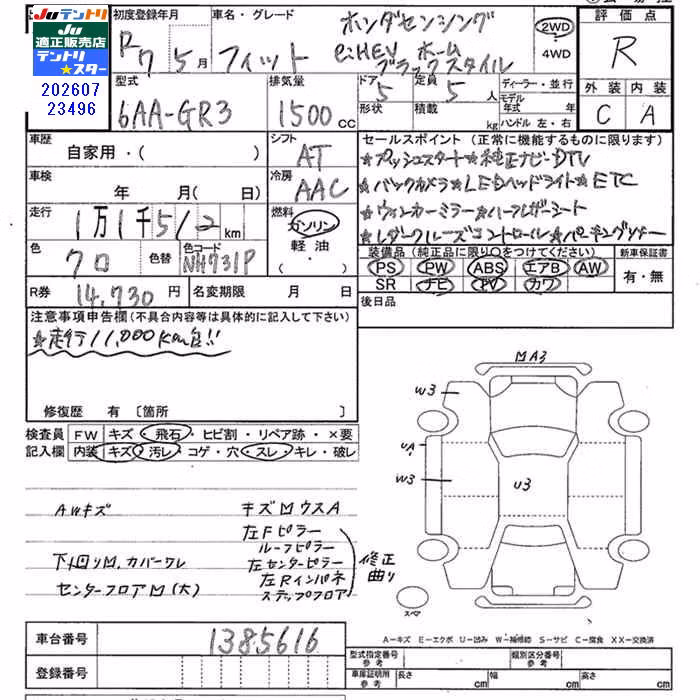 Juテントリ
Ju
適正販売店
テントリ
★スター
202607
23496
初度登録年月
R7 5月
車名・グレード
ホンダセンシング
フィット e:HEV ホーム
ブラックスタイル
2WD
4WD
評価点
R
外装 内装
C A
型式
6AA-GR3
排気量
1500cc
ドア 5
形状
定員 5人
積載 kg
ディーラー・並行
モデル年式 年
ハンドル 左・右
車歴
自家用・( )
シフト
AT
車検
年 月(日)
冷房
AAC
走行
1万1千512km
燃料
ガソリン
軽油
( ・ )
色
クロ
色替
色コード
NH731P
R券 14,730円
名変期限 月 日
セールスポイント(正常に機能するものに限ります)
★プッシュスタート★純正ナビ・DTV
★バックカメラ★LEDヘッドライト★ETC
★ウィンカーミラー★ハーフレザーシート
★レーダークルーズコントロール★パーキングソナー
装備品(純正品に限り○をつけてください)
PS PW ABS エアB AW
SR ナビ TV カワ
新車保証書
有・無
後日品
注意事項申告欄(不具合内容等は具体的に記入して下さい)
★走行11,000km台!!
修復歴 有 〔箇所 〕
検査員記入欄
FW キズ・飛石・ヒビ割・リペア跡・×要
内装 キズ・汚レ・コゲ・穴・スレ・キレ・破レ
AWキズ
キズMウスA
左Fピラー
ルーフピラー
下回りM.カバーワレ
左センターピラー
センターフロアM(大)
左Rインパネ
ステップフロア
修正
曲り
MA3
W3
UA
W3
U3
スペア
A−キズ E−エクボ U−凹み W−補修跡 S−サビ C−腐食 XX−交換済
車台番号 1385616
登録番号
型式指定番号 参考
類別区分番号 参考
車庫証明用 参考
長さ cm
幅 cm
高さ cm